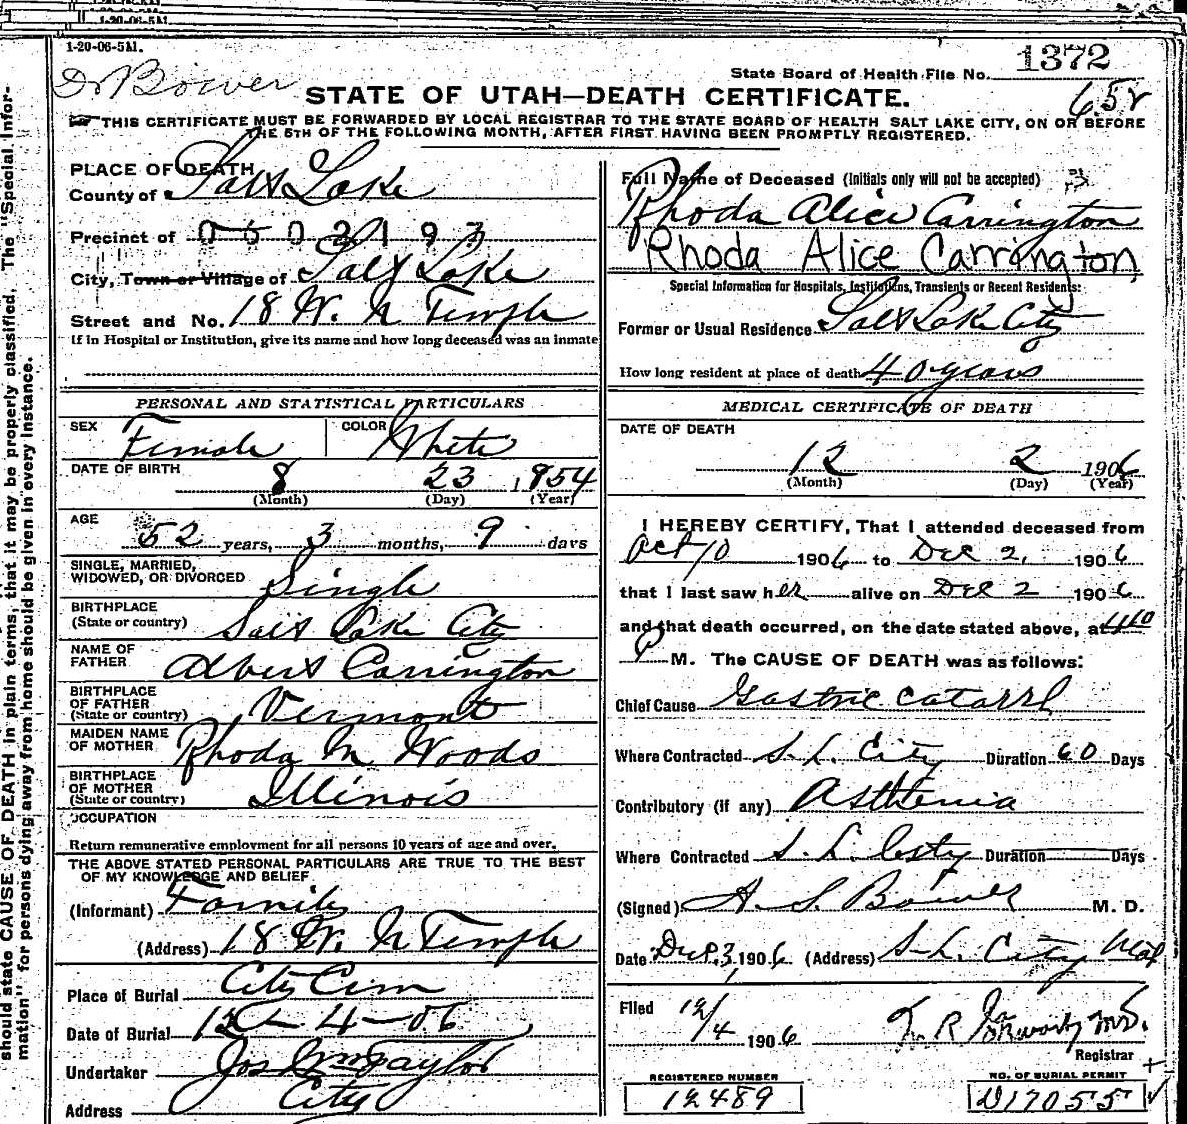 1-20-06-5M.
Dr Bower
State Board of Health File No. 1372
652
STATE OF UTAH—DEATH CERTIFICATE.
THIS CERTIFICATE MUST BE FORWARDED BY LOCAL REGISTRAR TO THE STATE BOARD OF HEALTH SALT LAKE CITY, ON OR BEFORE
THE 5TH OF THE FOLLOWING MONTH, AFTER FIRST HAVING BEEN PROMPTLY REGISTERED.
should state CAUSE OF DEATH in plain terms, that it may be properly classified. The "Special Infor-
mation" for persons dying away from home should be given in every instance.
PLACE OF DEATH
County of Salt Lake
Precinct of 0602193
City, Town or Village of Salt Lake
Street and No. 18 W. N Temple
If in Hospital or Institution, give its name and how long deceased was an inmate
PERSONAL AND STATISTICAL PARTICULARS
SEX Female COLOR White
DATE OF BIRTH 8 23 1954
(Month) (Day) (Year)
AGE 52 years, 3 months, 9 days
SINGLE, MARRIED,
WIDOWED, OR DIVORCED Single
BIRTHPLACE
(State or country) Salt Lake City
NAME OF
FATHER Albert Carrington
BIRTHPLACE
OF FATHER
(State or country) Vermont
MAIDEN NAME
OF MOTHER Rhoda M Woods
BIRTHPLACE
OF MOTHER
(State or country) Illinois
OCCUPATION
Return remunerative employment for all persons 10 years of age and over.
THE ABOVE STATED PERSONAL PARTICULARS ARE TRUE TO THE BEST
OF MY KNOWLEDGE AND BELIEF.
(Informant) Family
(Address) 18 W. N Temple
Place of Burial City Cem
Date of Burial 12-4-06
Undertaker Jos Wm Taylor
Address City
Full Name of Deceased (Initials only will not be accepted)
Rhoda Alice Carrington
Rhoda Alice Carrington
Special Information for Hospitals, Institutions, Transients or Recent Residents:
Former or Usual Residence Salt Lake City
How long resident at place of death 40 years
MEDICAL CERTIFICATE OF DEATH
DATE OF DEATH
12 2 1906
(Month) (Day) (Year)
I HEREBY CERTIFY, That I attended deceased from
Oct 10 1906 to Dec 2, 1906
that I last saw her alive on Dec 2 1906
and that death occurred, on the date stated above, at 440
P M. The CAUSE OF DEATH was as follows:
Chief Cause Gastric Catarrh
Where Contracted S. L. City Duration 60 Days
Contributory (if any) Asthenia
Where Contracted S. L. City Duration Days
(Signed) A. S. Bower M. D.
Date Dec. 3, 1906. (Address) S-L. City Utah
Filed 12/4 1906
Registrar
REGISTERED NUMBER
12489
NO. OF BURIAL PERMIT
D17055